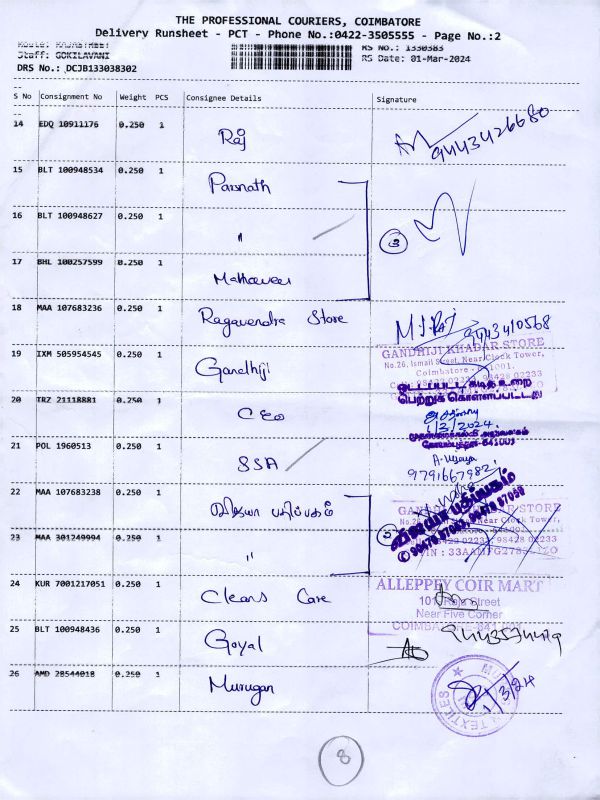 THE PROFESSIONAL COURIERS, COIMBATORE
Delivery Runsheet - PCT - Phone No.:0422-3505555 - Page No.:2
RS No.: 1330383
Staff: GOKILAVANI
RS Date: 01-Mar-2024
DRS No.: DCJB133038302
S No Consignment No Weight PCS Consignee Details Signature
14 EDQ 10911176 0.250 1 Raj 9443426680
15 BLT 100948534 0.250 1 Parsnath
16 BLT 100948627 0.250 1 " 3
17 BHL 100257599 0.250 1 Mahaveer
18 MAA 107683236 0.250 1 Ragavendra Store M.S.Raj 9443410568
19 IXM 505954545 0.250 1 Gandhiji
GANDHIJI KHADAR STORE
No.26, Ismail Street, Near Clock Tower,
Coimbatore - 641001.
20 TRZ 21118881 0.250 1 CEO
பெற்றுக் கொள்ளப்பட்டது
1/3/2024
21 POL 1960513 0.250 1 SSA
A. Vijaya
9791667982
22 MAA 107683238 0.250 1 விஜயா பதிப்பகம்
GANDHIJI KHADAR STORE
Near Clock Tower,
23 MAA 301249994 0.250 1 "
விஜயா பதிப்பகம்
24 KUR 7001217051 0.250 1 Cleans Care
ALLEPPEY COIR MART
101, Raja Street
Near Five Corner
25 BLT 100948436 0.250 1 Goyal
26 AMD 28544018 0.250 1 Murugan
1/3/24
TEXTILES
8